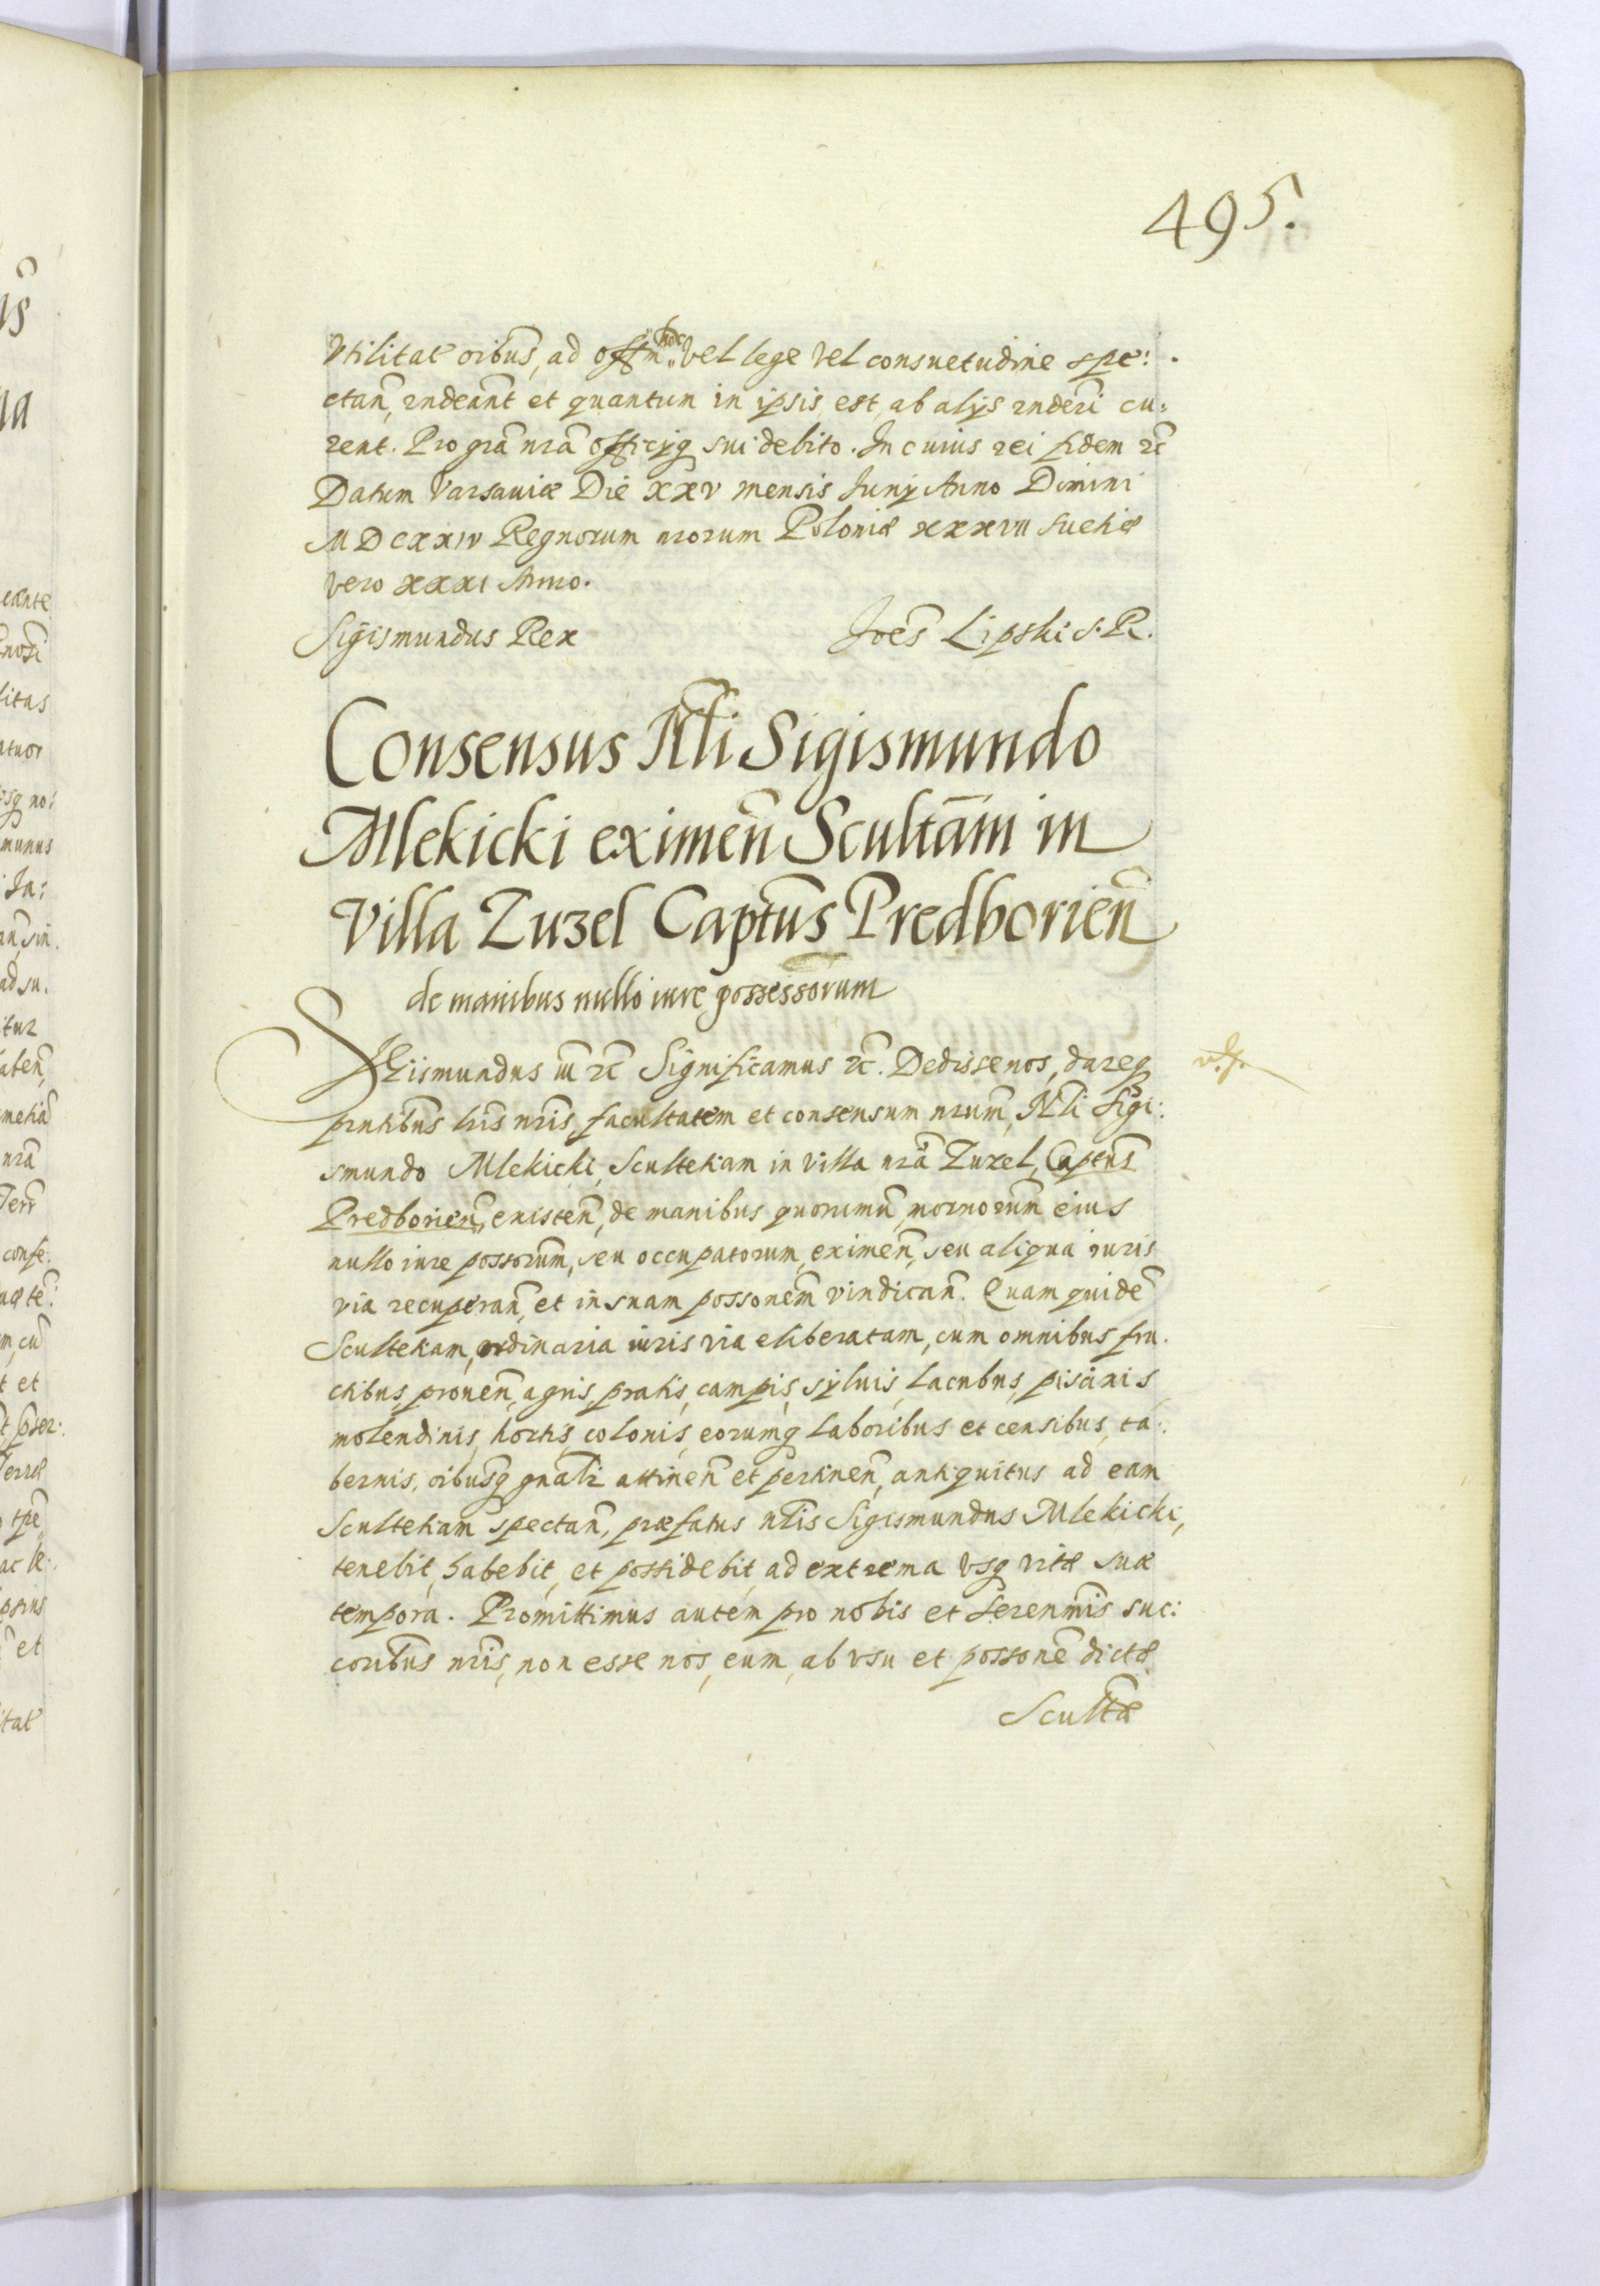 495.
Vtilitat oibus, ad offm hoc vel lege vel consuetudine spe:
ctan, rndeant et quantum in ipsis est, ab alijs rnderi cu:
rent. Pro gra nra officijq sui debito. In cuius rei fidem rc
Datum Varsaviæ Die XXV mensis Junij Anno Domini
MDCXXIV Regnorum nrorum Poloniæ XXXVII Sueciæ
vero XXXI Anno.
Sigismundus Rex Joes Lipski S. R.
Consensus Nli Sigismundo
Mlekicki eximen Scultam in
Villa Zuzel Captus Predborien
de manibus nullo iure possessorum
Sigismundus III rc Significamus rc. Dedisse nos, dareq
pntibus lris nris, facultatem et consensum nrum, Nli Sigi:
smundo Mlekicki, Scultetiam in villa nra Zuzel, Captus
Predborien, existen, de manibus quorumuis, modernorum eius
nullo iure possorum, seu occupatorum, eximen, seu aliqua iuris
via recuperan, et in suam possonem vindican. Quam quide
Scultetiam, ordinaria iuris via eliberatam, cum omnibus fru.
ctibus, prouen, agris, pratis, campis, syluis, lacubus, piscinis
molendinis, hortis, colonis, eorumq laboribus et censibus, ta:
bernis, oibusq gnalr attinen et pertinen, antiquitus ad eam
Scultetiam spectan, præfatus nlis Sigismundus Mlekicki,
tenebit, habebit, et possidebit, ad extrema vsq vitæ suæ
tempora. Promittimus autem pro nobis et Serenmis suc:
coribus nris, non esse nos, eum, ab vsu et possone dictæ
Scultæ